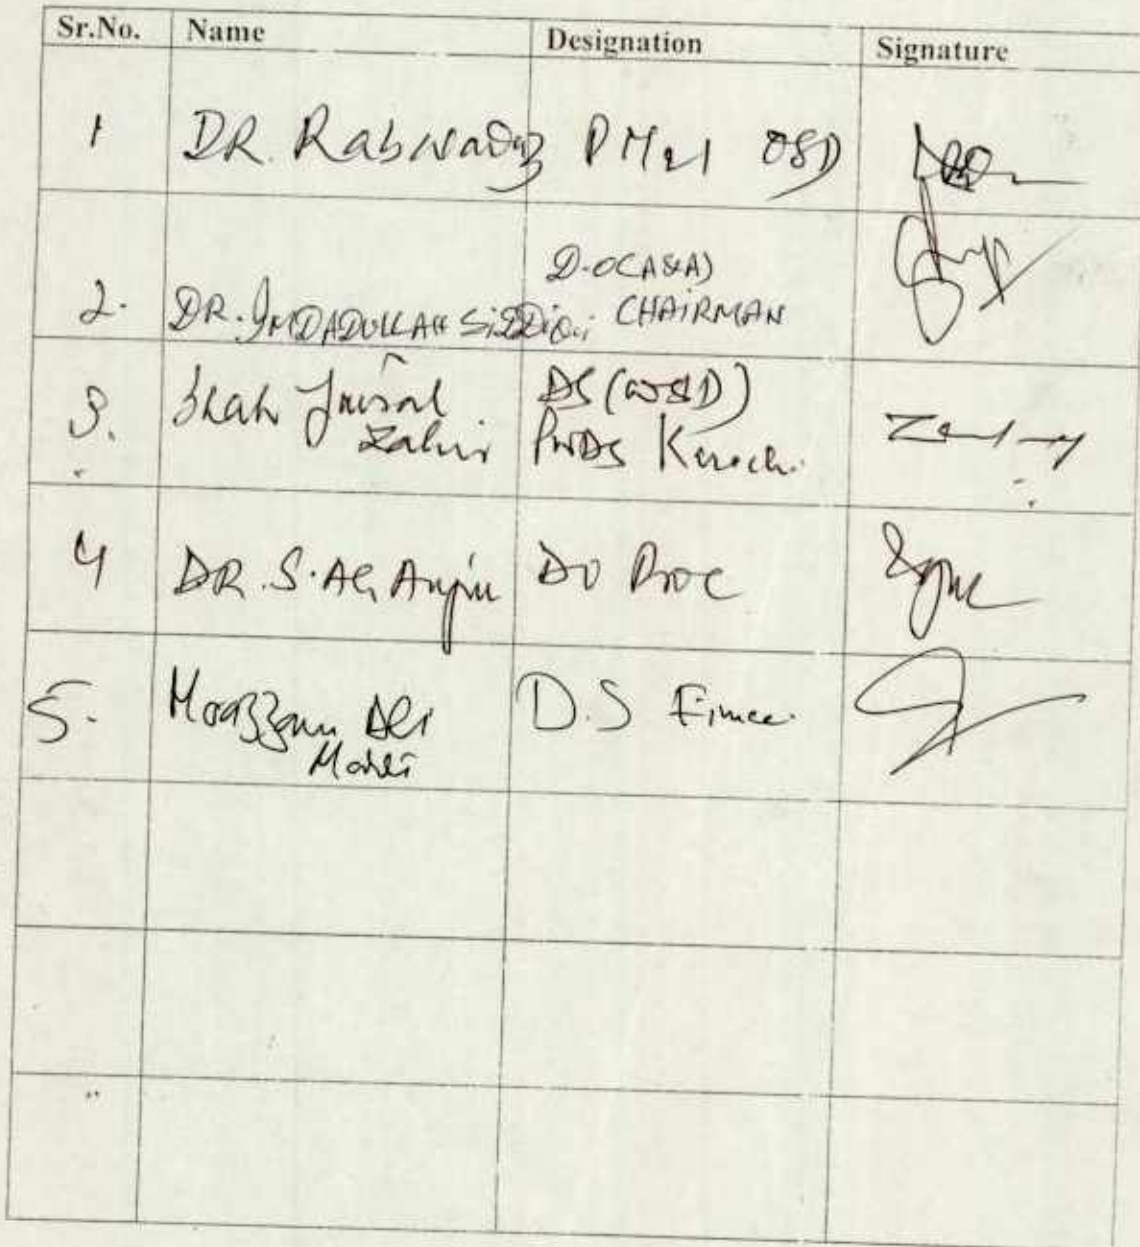 Sr.No. Name Designation Signature
1 DR. Rabnawaz OSD
2. DR. IMDADULLAH SiDDiQui D.O(A&A) CHAIRMAN
3. Shah Faisal Zahir DS (W&D) P&D Karachi
4 DR. S. Ali Anjum DO Proc
5. Moazzam Ali D.S